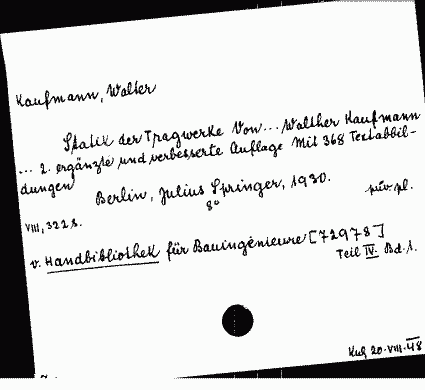 Kaufmann, Walter
Statik der Tragwerke Von ... Walther Kaufmann
... 2. ergänzte und verbesserte Auflage Mit 368 Textabbil-
dungen
Berlin, Julius Springer, 1930.
8°
VIII, 322 s.
v. Handbibliothek für Bauingenieure [72978]
Teil IV. Bd. 1.
20-VIII-48